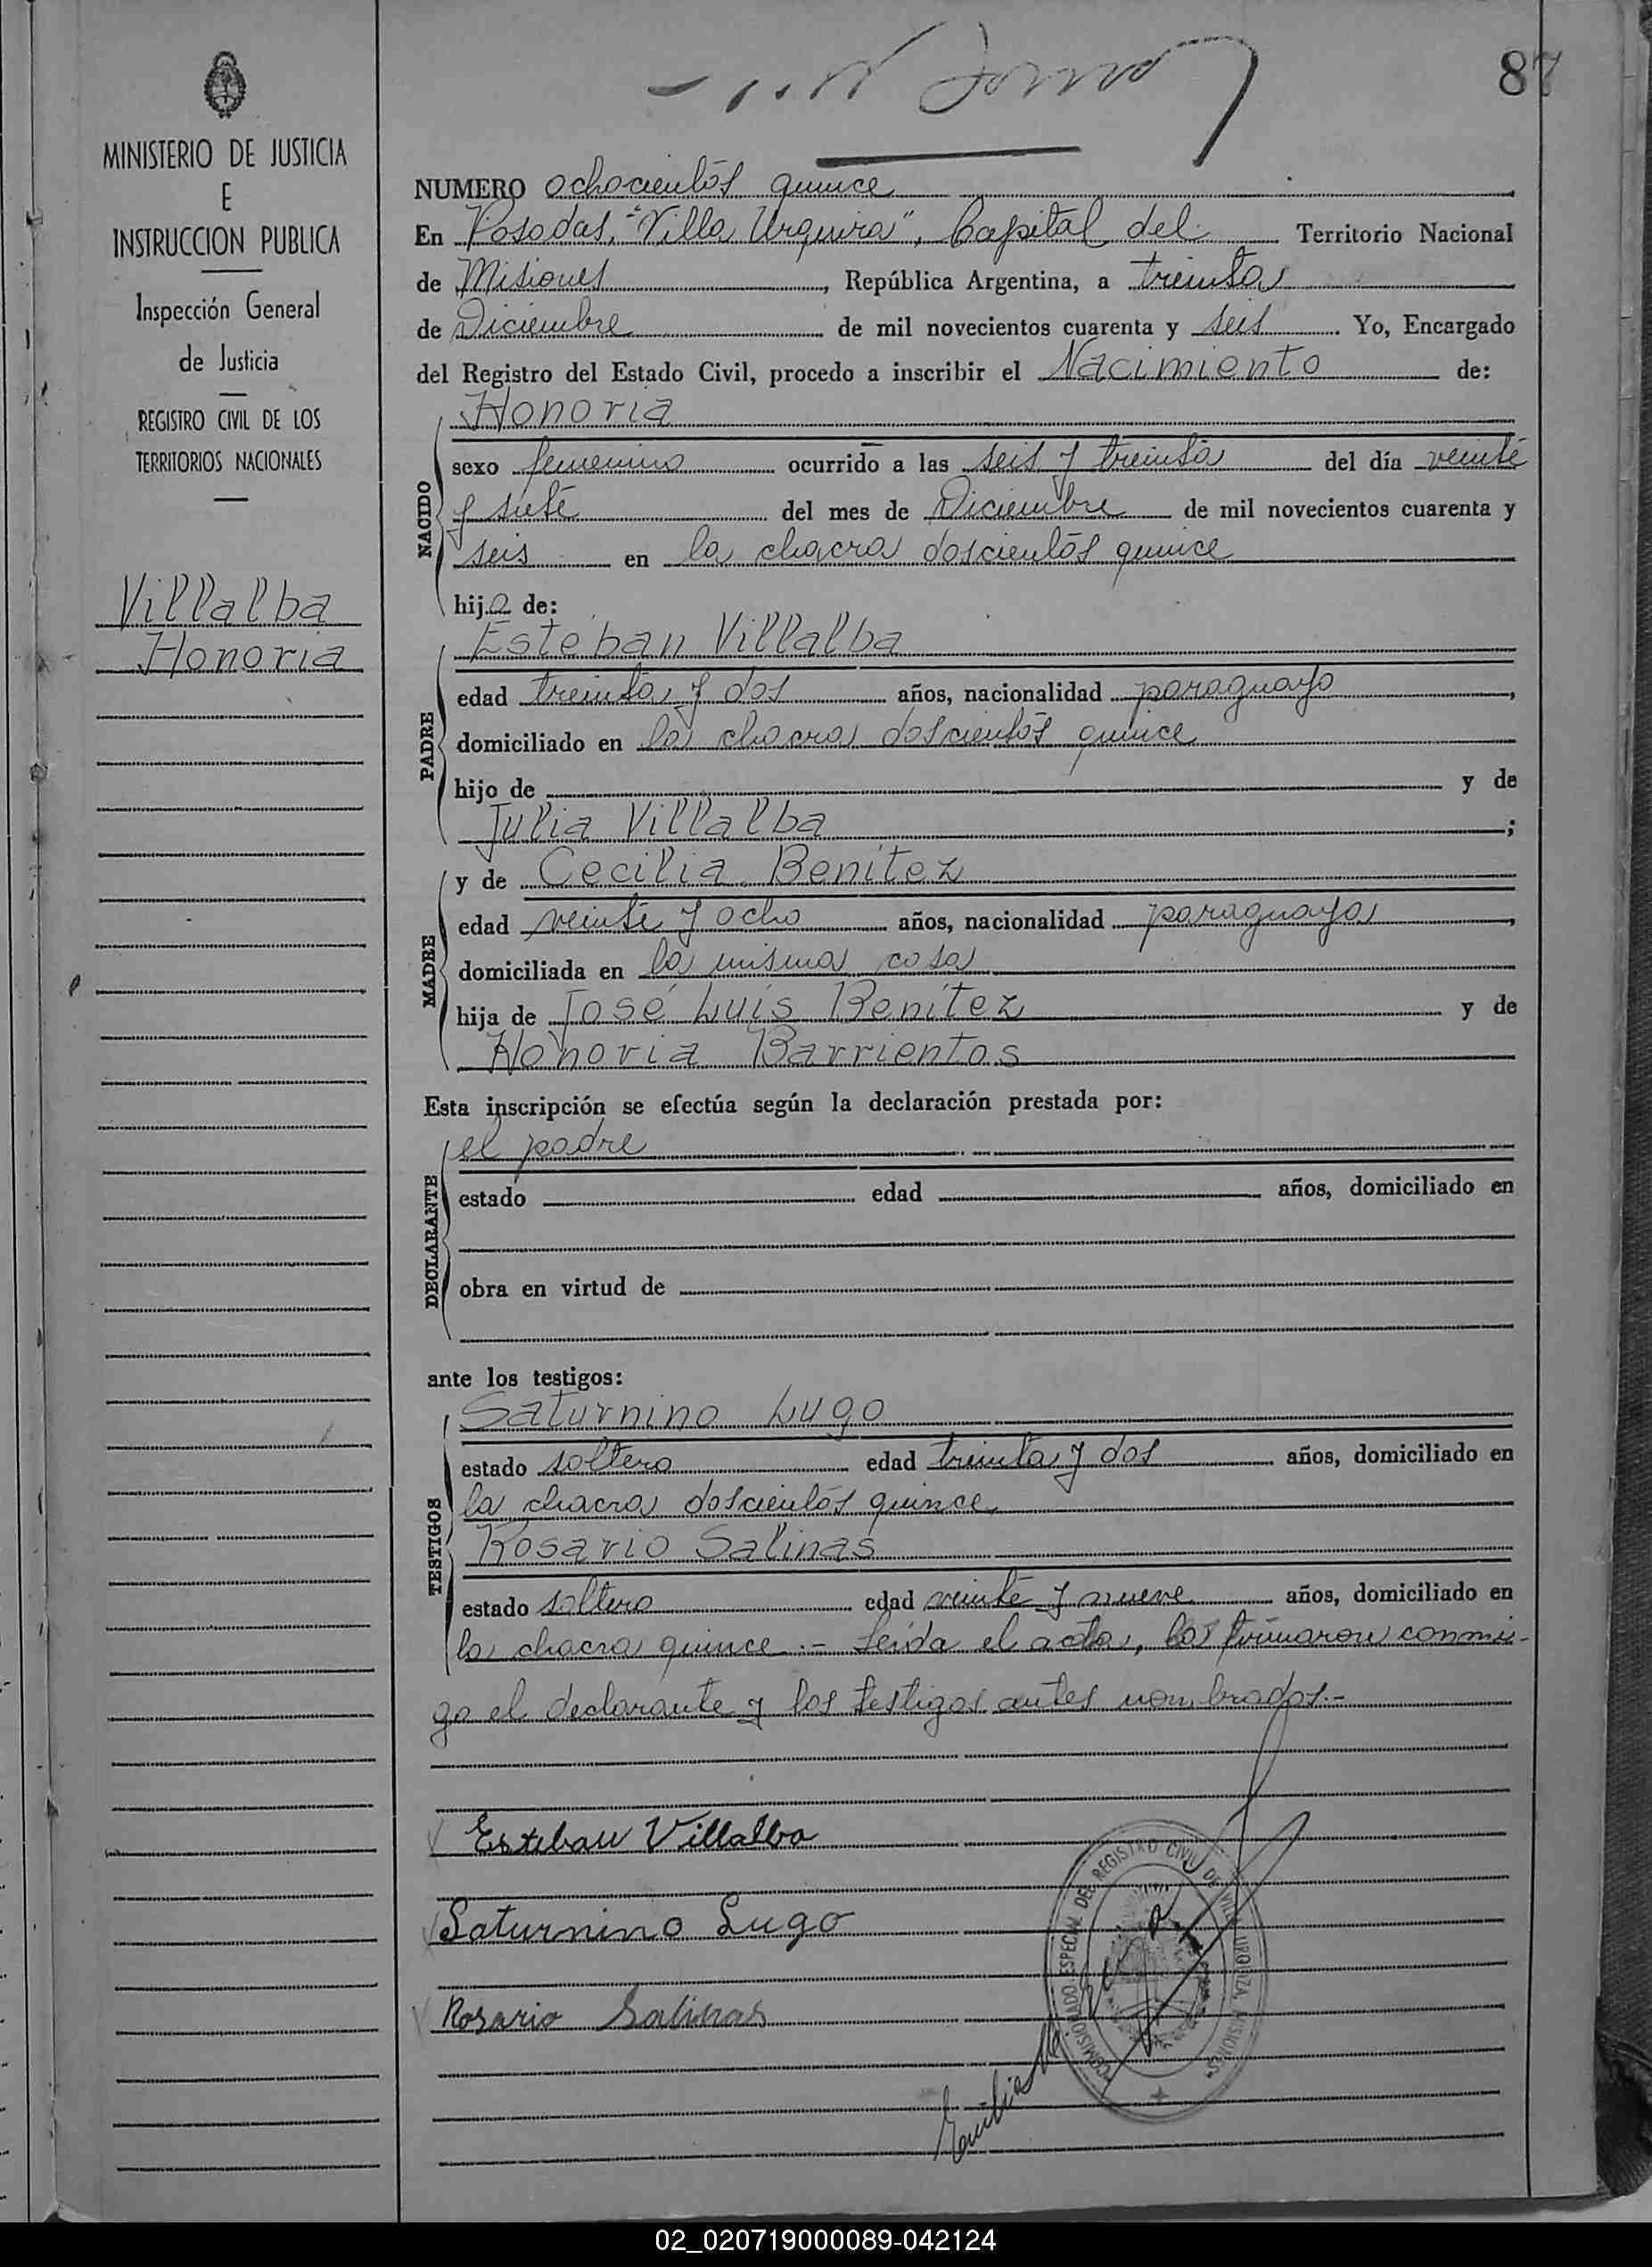 87
MINISTERIO DE JUSTICIA
E
INSTRUCCION PUBLICA
Inspección General
de Justicia
REGISTRO CIVIL DE LOS
TERRITORIOS NACIONALES
Villalba
Honoria
NUMERO ochocientos quince
En Posadas, "Villa Urquiza", Capital del Territorio Nacional
de Misiones, República Argentina, a treinta
de Diciembre de mil novecientos cuarenta y seis. Yo, Encargado
del Registro del Estado Civil, procedo a inscribir el Nacimiento de:
NACIDO
Honoria
sexo femenino ocurrido a las seis y treinta del día veinte
y siete del mes de Diciembre de mil novecientos cuarenta y
seis en la chacra doscientos quince
hija de:
PADRE
Esteban Villalba
edad treinta y dos años, nacionalidad paraguayo,
domiciliado en la chacra doscientos quince
hijo de y de
Julia Villalba;
MADRE
y de Cecilia Benítez
edad veinte y ocho años, nacionalidad paraguaya,
domiciliada en la misma casa
hija de José Luis Benítez y de
Honoria Barrientos
Esta inscripción se efectúa según la declaración prestada por:
DECLARANTE
el padre
estado edad años, domiciliado en
obra en virtud de
ante los testigos:
TESTIGOS
Saturnino Lugo
estado soltero edad treinta y dos años, domiciliado en
la chacra doscientos quince,
Rosario Salinas
estado soltero edad veinte y nueve años, domiciliado en
la chacra quince.- Leída el acta, la firmaron conmi-
go el declarante y los testigos antes nombrados.-
Esteban Villalba
Saturnino Lugo
Rosario Salinas
COMISIONADO ESPECIAL DEL REGISTRO CIVIL DE VILLA URQUIZA, MISIONES
Emilia
02_020719000089-042124